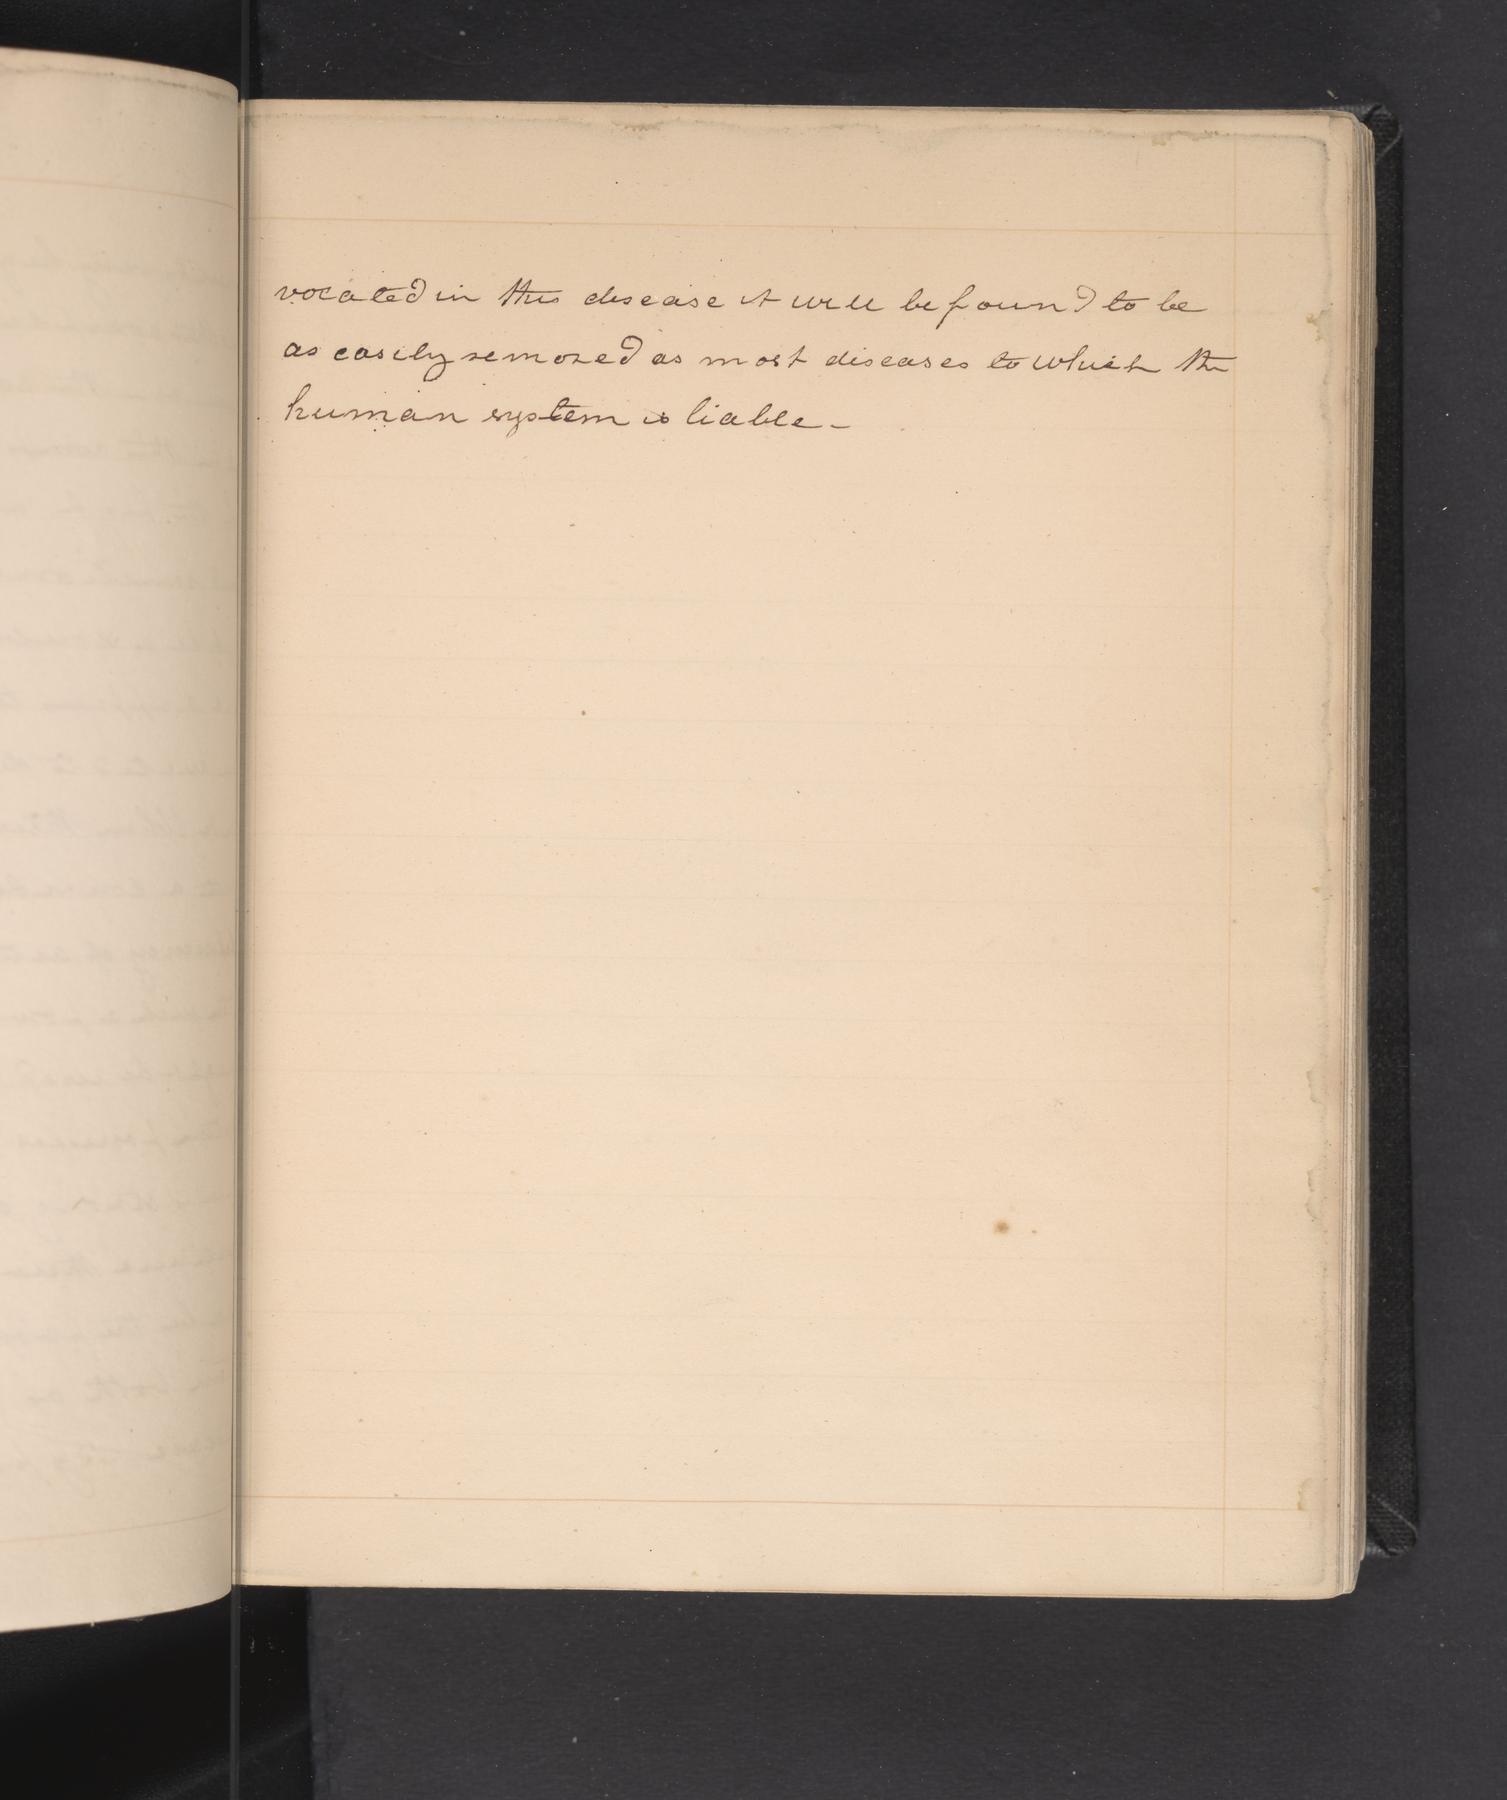 vocated in this disease it will be found to be
as easily removed as most diseases to which the
human system is liable –